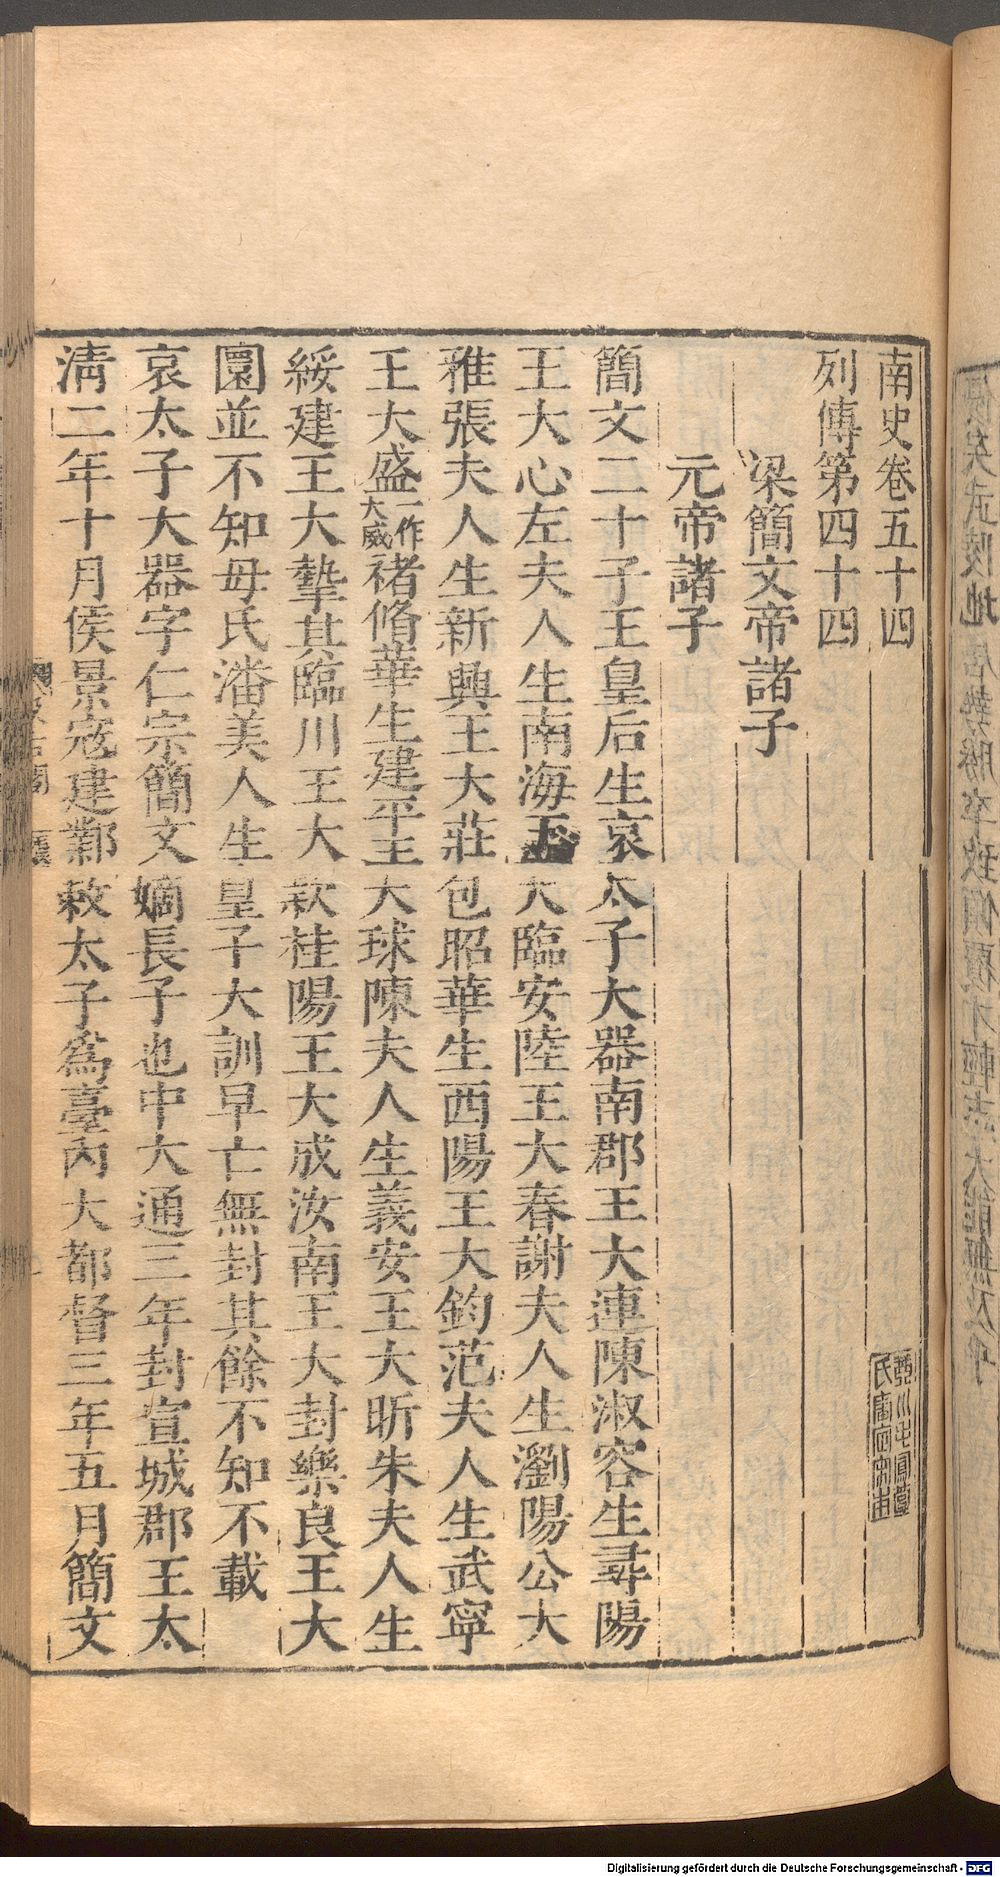 南史卷五十四
列傳第四十四
梁簡文帝諸子
元帝諸子
簡文二十子王皇后生哀太子大器南郡王大連陳淑容生尋陽
王大心左夫人生南海王大臨安陸王大春謝夫人生瀏陽公大
雅張夫人生新興王大莊包昭華生西陽王大鈞范夫人生武寧
王大盛一作大威褚脩華生建平王大球陳夫人生義安王大昕朱夫人生
綏建王大摯其臨川王大款桂陽王大成汝南王大封樂良王大
圜並不知母氏潘美人生皇子大訓早亡無封其餘不知不載
哀太子大器字仁宗簡文嫡長子也中大通三年封宣城郡王太
淸二年十月侯景寇建鄴敕太子爲臺內大都督三年五月簡文
Digitalisierung gefördert durch die Deutsche Forschungsgemeinschaft - DFG